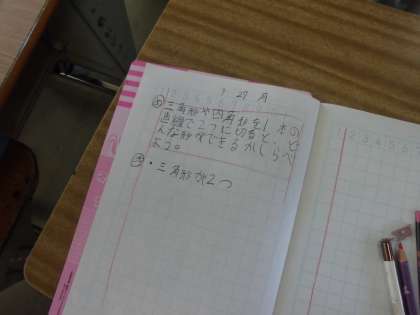 1 27 月
め 三角形や四角形を1本の
直線で2つに切ると、ど
んな形ができるかしらべ
よう。
・三角形が2つ